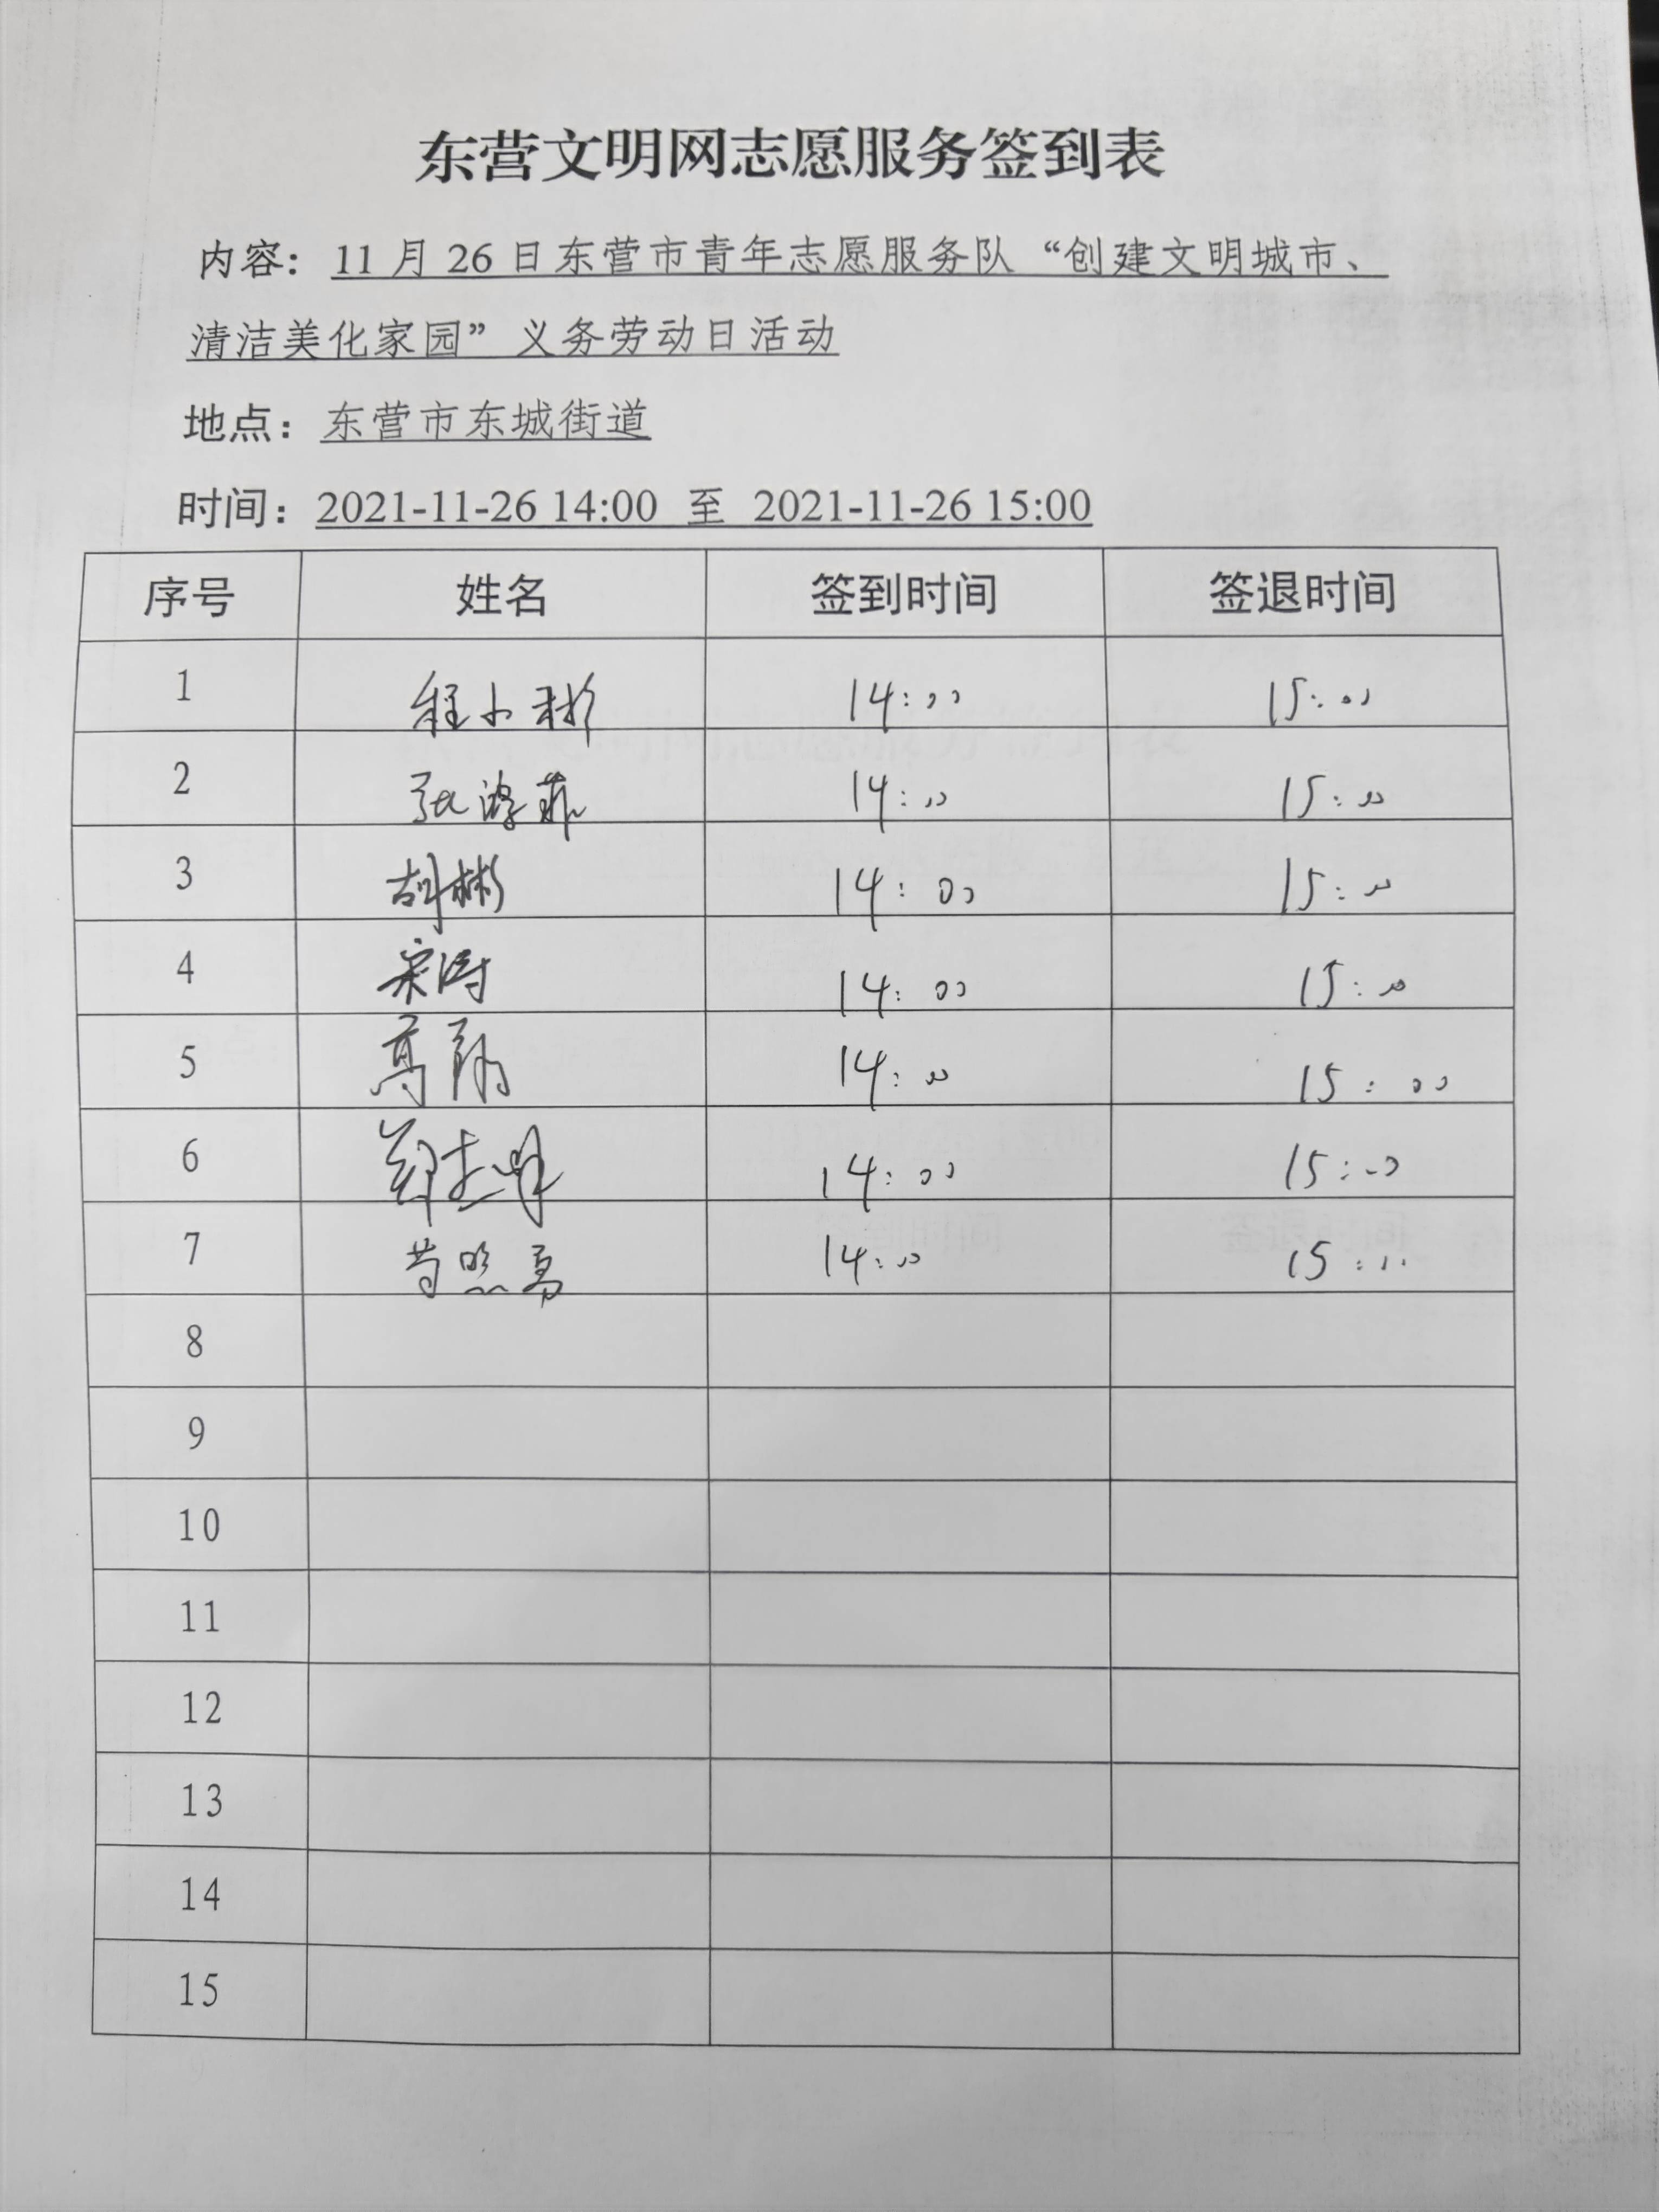 东营文明网志愿服务签到表
内容：11月26日东营市青年志愿服务队“创建文明城市、
清洁美化家园”义务劳动日活动
地点：东营市东城街道
时间：2021-11-26 14:00 至 2021-11-26 15:00
序号 姓名 签到时间 签退时间
1 程小彬 14:00 15:00
2 张 14:00 15:00
3 胡彬 14:00 15:00
4 宋涛 14:00 15:00
5 高翔 14:00 15:00
6 郑志峰 14:00 15:00
7 14:00 15:00
8
9
10
11
12
13
14
15